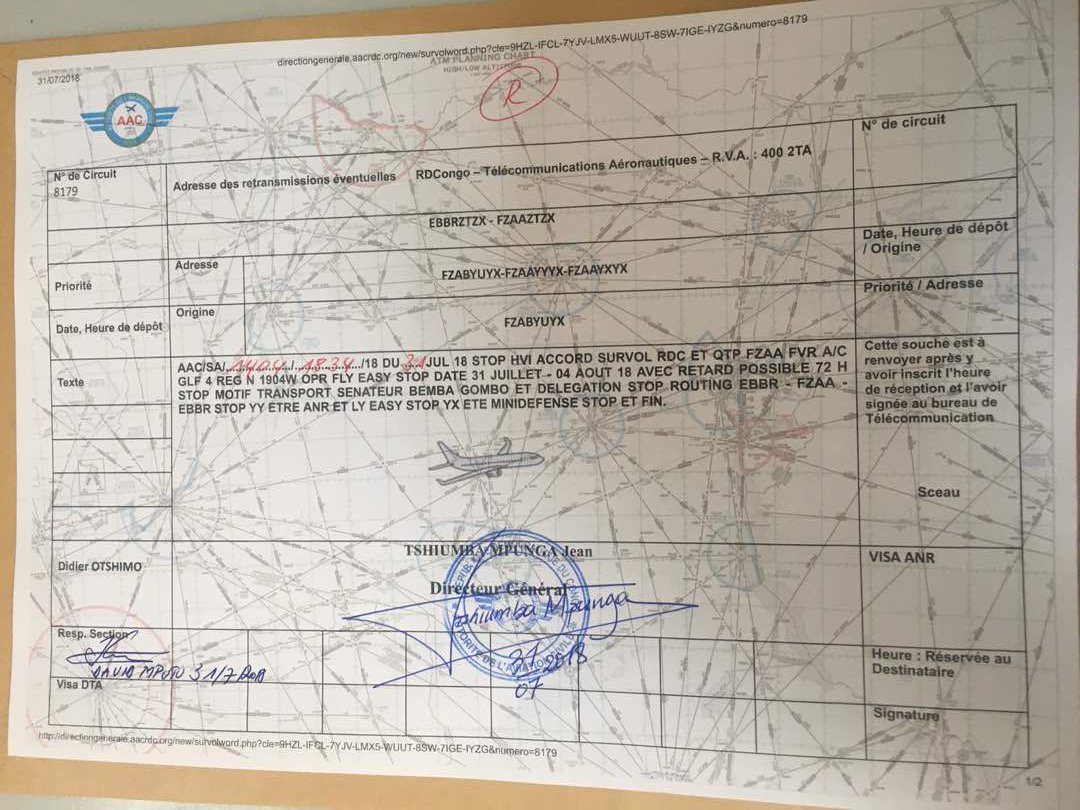 directiongenerale.aacrdc.org/new/survolword.php?cle=9HZL-IFCL-7YJV-LMX5-WUUT-8SW-7IGE-IYZG&numero=8179
31/07/2018
ATM PLANNING CHART
HIGH/LOW ALTITUDE
R
AAC
N° de Circuit
8179
Adresse des retransmissions éventuelles RDCongo – Télécommunications Aéronautiques – R.V.A. : 400 2TA
N° de circuit
EBBRZTZX - FZAAZTZX
Date, Heure de dépôt
/ Origine
Priorité
Adresse
FZABYUYX-FZAAYYYX-FZAAYXYX
Priorité / Adresse
Date, Heure de dépôt
Origine
FZABYUYX
Texte
AAC/SA/..1404../..1834.../18 DU 31 JUL 18 STOP HVI ACCORD SURVOL RDC ET QTP FZAA FVR A/C
GLF 4 REG N 1904W OPR FLY EASY STOP DATE 31 JUILLET - 04 AOUT 18 AVEC RETARD POSSIBLE 72 H
STOP MOTIF TRANSPORT SENATEUR BEMBA GOMBO ET DELEGATION STOP ROUTING EBBR - FZAA -
EBBR STOP YY ETRE ANR ET LY EASY STOP YX ETE MINIDEFENSE STOP ET FIN.
Cette souche est à
renvoyer après y
avoir inscrit l'heure
de réception et l'avoir
signée au bureau de
Télécommunication
Sceau
Didier OTSHIMO
TSHIUMBA MPUNGA Jean
Directeur Général
Tshiumba Mpunga
31 2018
07
VISA ANR
Resp. Section
DAVID MPUTU 31/7/2018
Visa DTA
Heure : Réservée au
Destinataire
Signature
http://directiongenerale.aacrdc.org/new/survolword.php?cle=9HZL-IFCL-7YJV-LMX5-WUUT-8SW-7IGE-IYZG&numero=8179
1/2